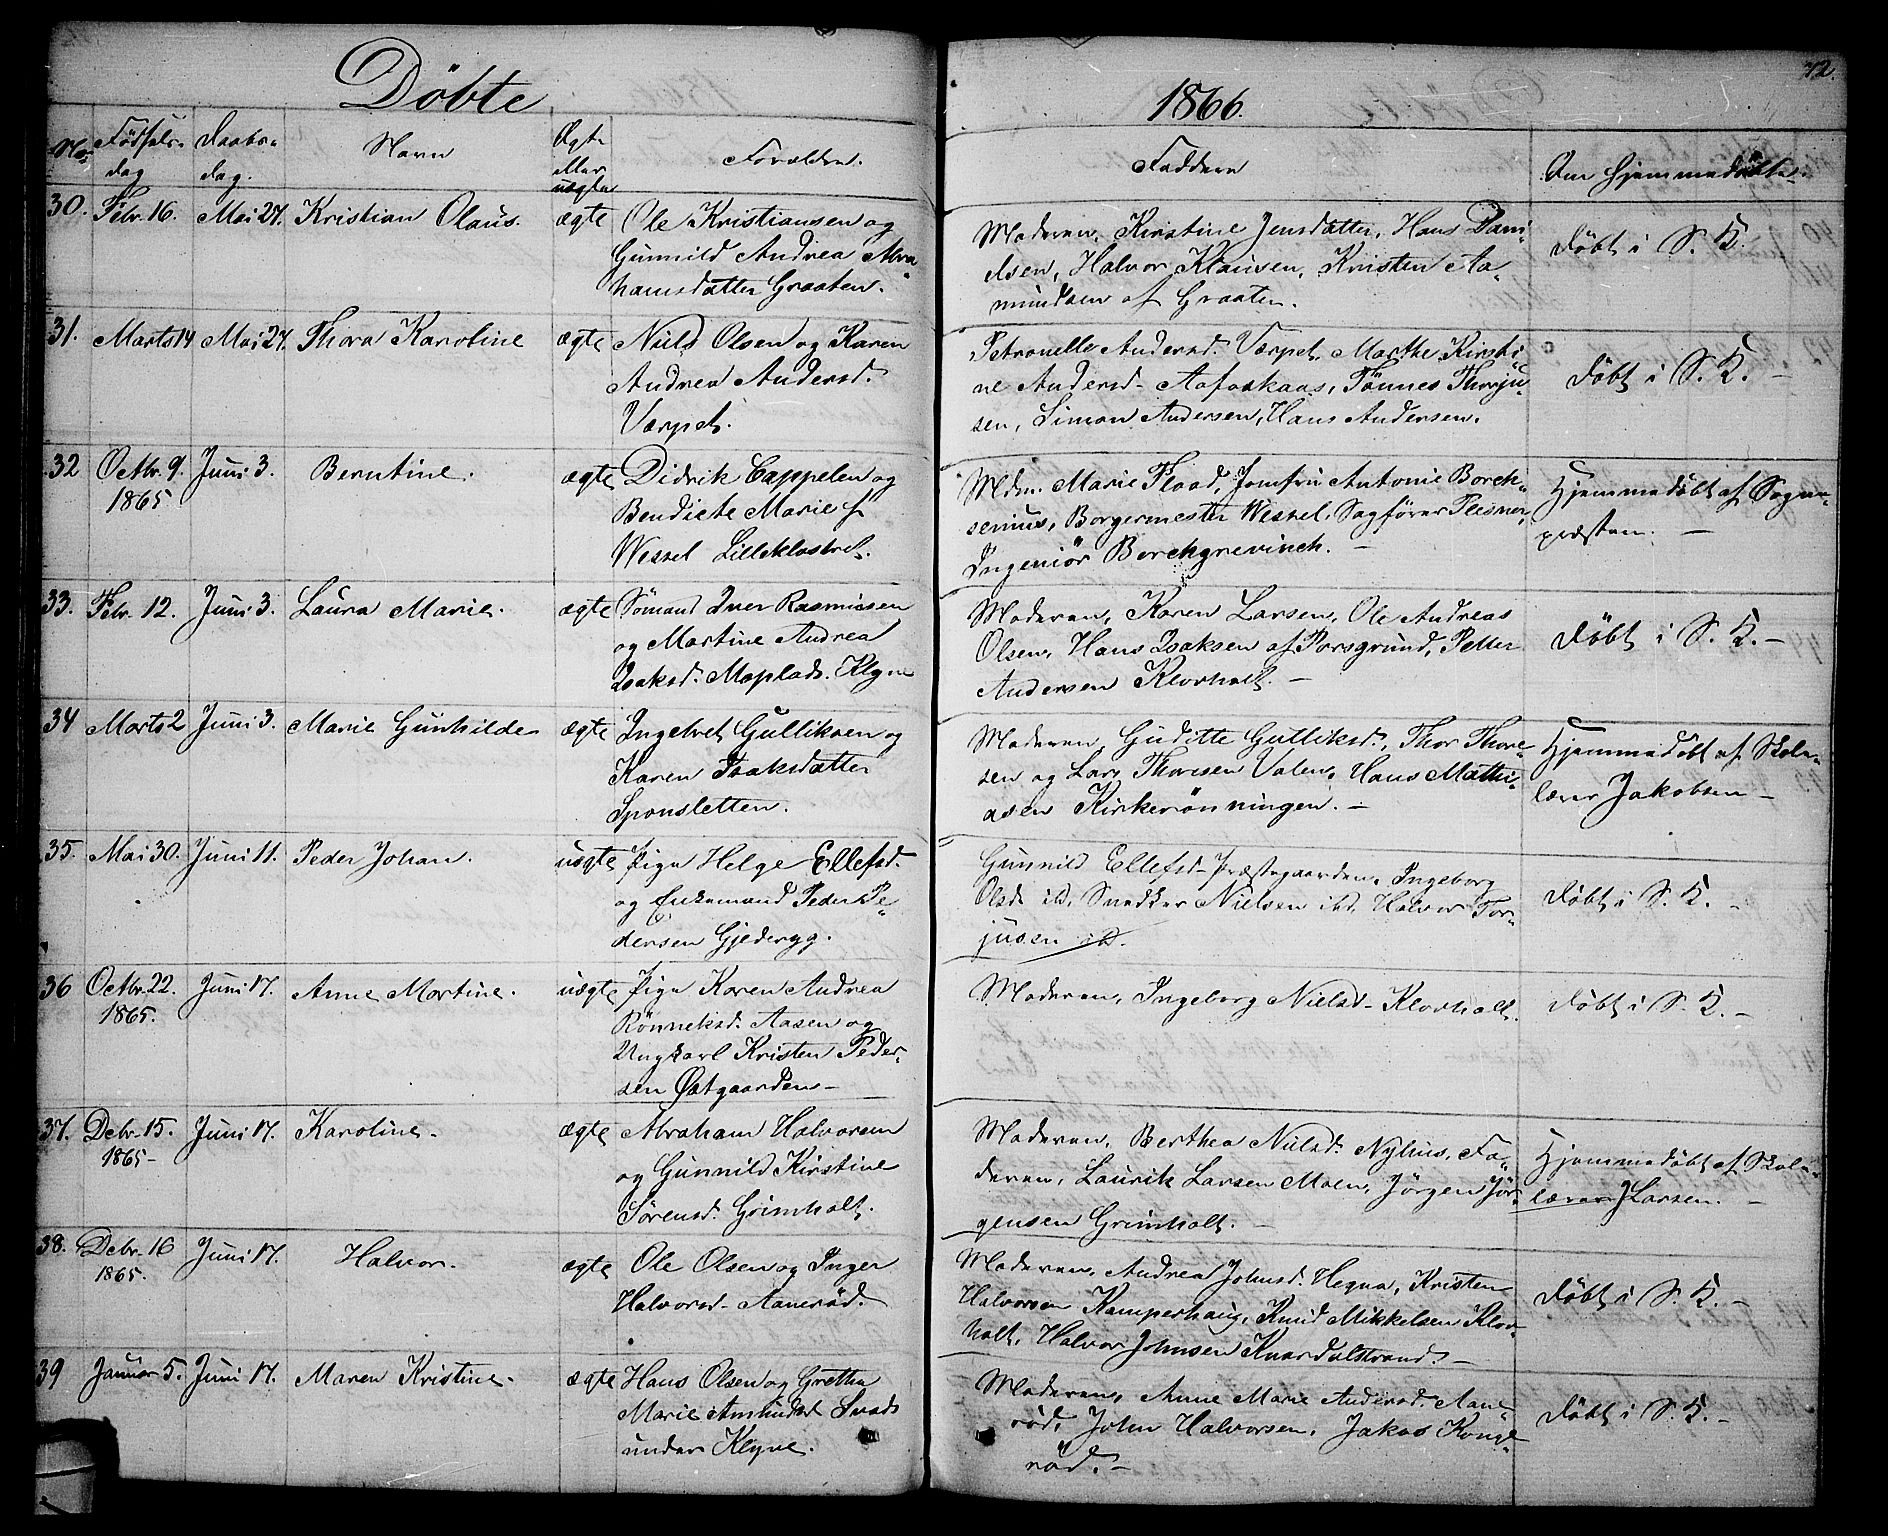 Döbte
1866.
72.
No. Fødsels-dag Daabs-dag. Navn Ægte eller uægte Forældre. Faddere Om hjemmedøbt.
30. Febr. 16. Mai 27. Kristian Olaus. ægte Ole Kristiansen og
Gunnild Andrea Abra-
hamsdatter Graaten.
Moderen, Kirstine Jensdatter, Hans Dani-
elsen, Halvor Klausen, Kristen Aa-
mundsen af Graaten.
Døbt i S. K.
31. Marts 14 Mai 27. Thora Karoline ægte Niels Olsen og Karen
Andrea Andersd.
Værpet.
Petronelle Andersd. Værpet, Marthe Kirsti-
ne Andersd. Aafoskaas, Tönnes Thorju-
sen, Simon Andersen, Hans Andersen.
Døbt i S. K. -
32 Octbr. 9. 1865 Juni 3. Berntine. ægte Didrik Cappelen og
Bendicte Marie f
Wessel Lilleklostret.
Mdm. Marie Flood, Jomfru Antonie Borch-
senius, Borgermester Wessel, Sagförer Plesner,
Ingeniör Borchgrevinck. -
Hjemmedøbt af Sogne-
præsten. -
33. Febr. 12. Juni 3. Laura Marie. ægte Sömand Iver Rasmussen
og Martine Andrea
Isaksd. Moplads. Klyve
Moderen, Karen Larsen, Ole Andreas
Olsen, Hans Isaksen af Porsgrund, Petter
Andersen Klovholt. -
Døbt i S. K. -
34 Marts 2 Juni 3. Marie Gunhilde ægte Ingebret Gulliksen og
Karen Isaksdatter
Sponsletten.
Moderen, Guditte Gulliksd., Thor Thore-
sen og Lars Thoresen Valen, Hans Matthi-
asen Kirkerönningen. -
Hjemmedøbt af Skole-
lærer Jakobsen -
35. Mai 30. Juni 11. Peder Johan. uægte Pige Helge Ellefsd.
og Enkemand Peder Pe-
dersen Gjederyg.
Gunnild Ellefsd. Præstegaarden, Ingeborg
Olsd. ibd, Snedker Nielsen ibd, Halvor Tor-
jusen ibd.
Døbt i S. K. -
36 Octbr. 22. 1865. Juni 17. Anne Martine. uægte Pige Karen Andrea
Rönneksd. Aasen og
Ungkarl Kristen Peder-
sen Østgaarden -
Moderen, Ingeborg Nielsd. Klovholt.
Døbt i S. K. -
37. Debr. 15. 1865 - Juni 17. Karoline. ægte Abraham Halvorsen
og Gunnild Kirstine
Sörensd. Grimholt.
Moderen, Berthea Nielsd. Nyhus, Fa-
deren, Laurik Larsen Moen, Jörgen Jör-
gensen Grimholt. -
Hjemmedøbt af Skole-
lærer J Larsen. -
38. Debr. 16 1865. Juni 17. Halvor. ægte Ole Olsen og Inger
Halvorsd. Aanerød.
Moderen, Andrea Johnsd. Hegna, Kristen
Halvorsen Kamperhaug, Knud Mikkelsen Klov-
holt, Halvor Johnsen Knardalstrand. -
Døbt i S. K. -
39 Januar 5. Juni 17. Maren Kristine. ægte Hans Olsen og Grethe
Marie Amundsd
under Klyve.
Moderen, Anne Marie Andersd. Aane-
röd, John Halvorsen, Jakob Konge-
röd. -
Døbt i S. K. -